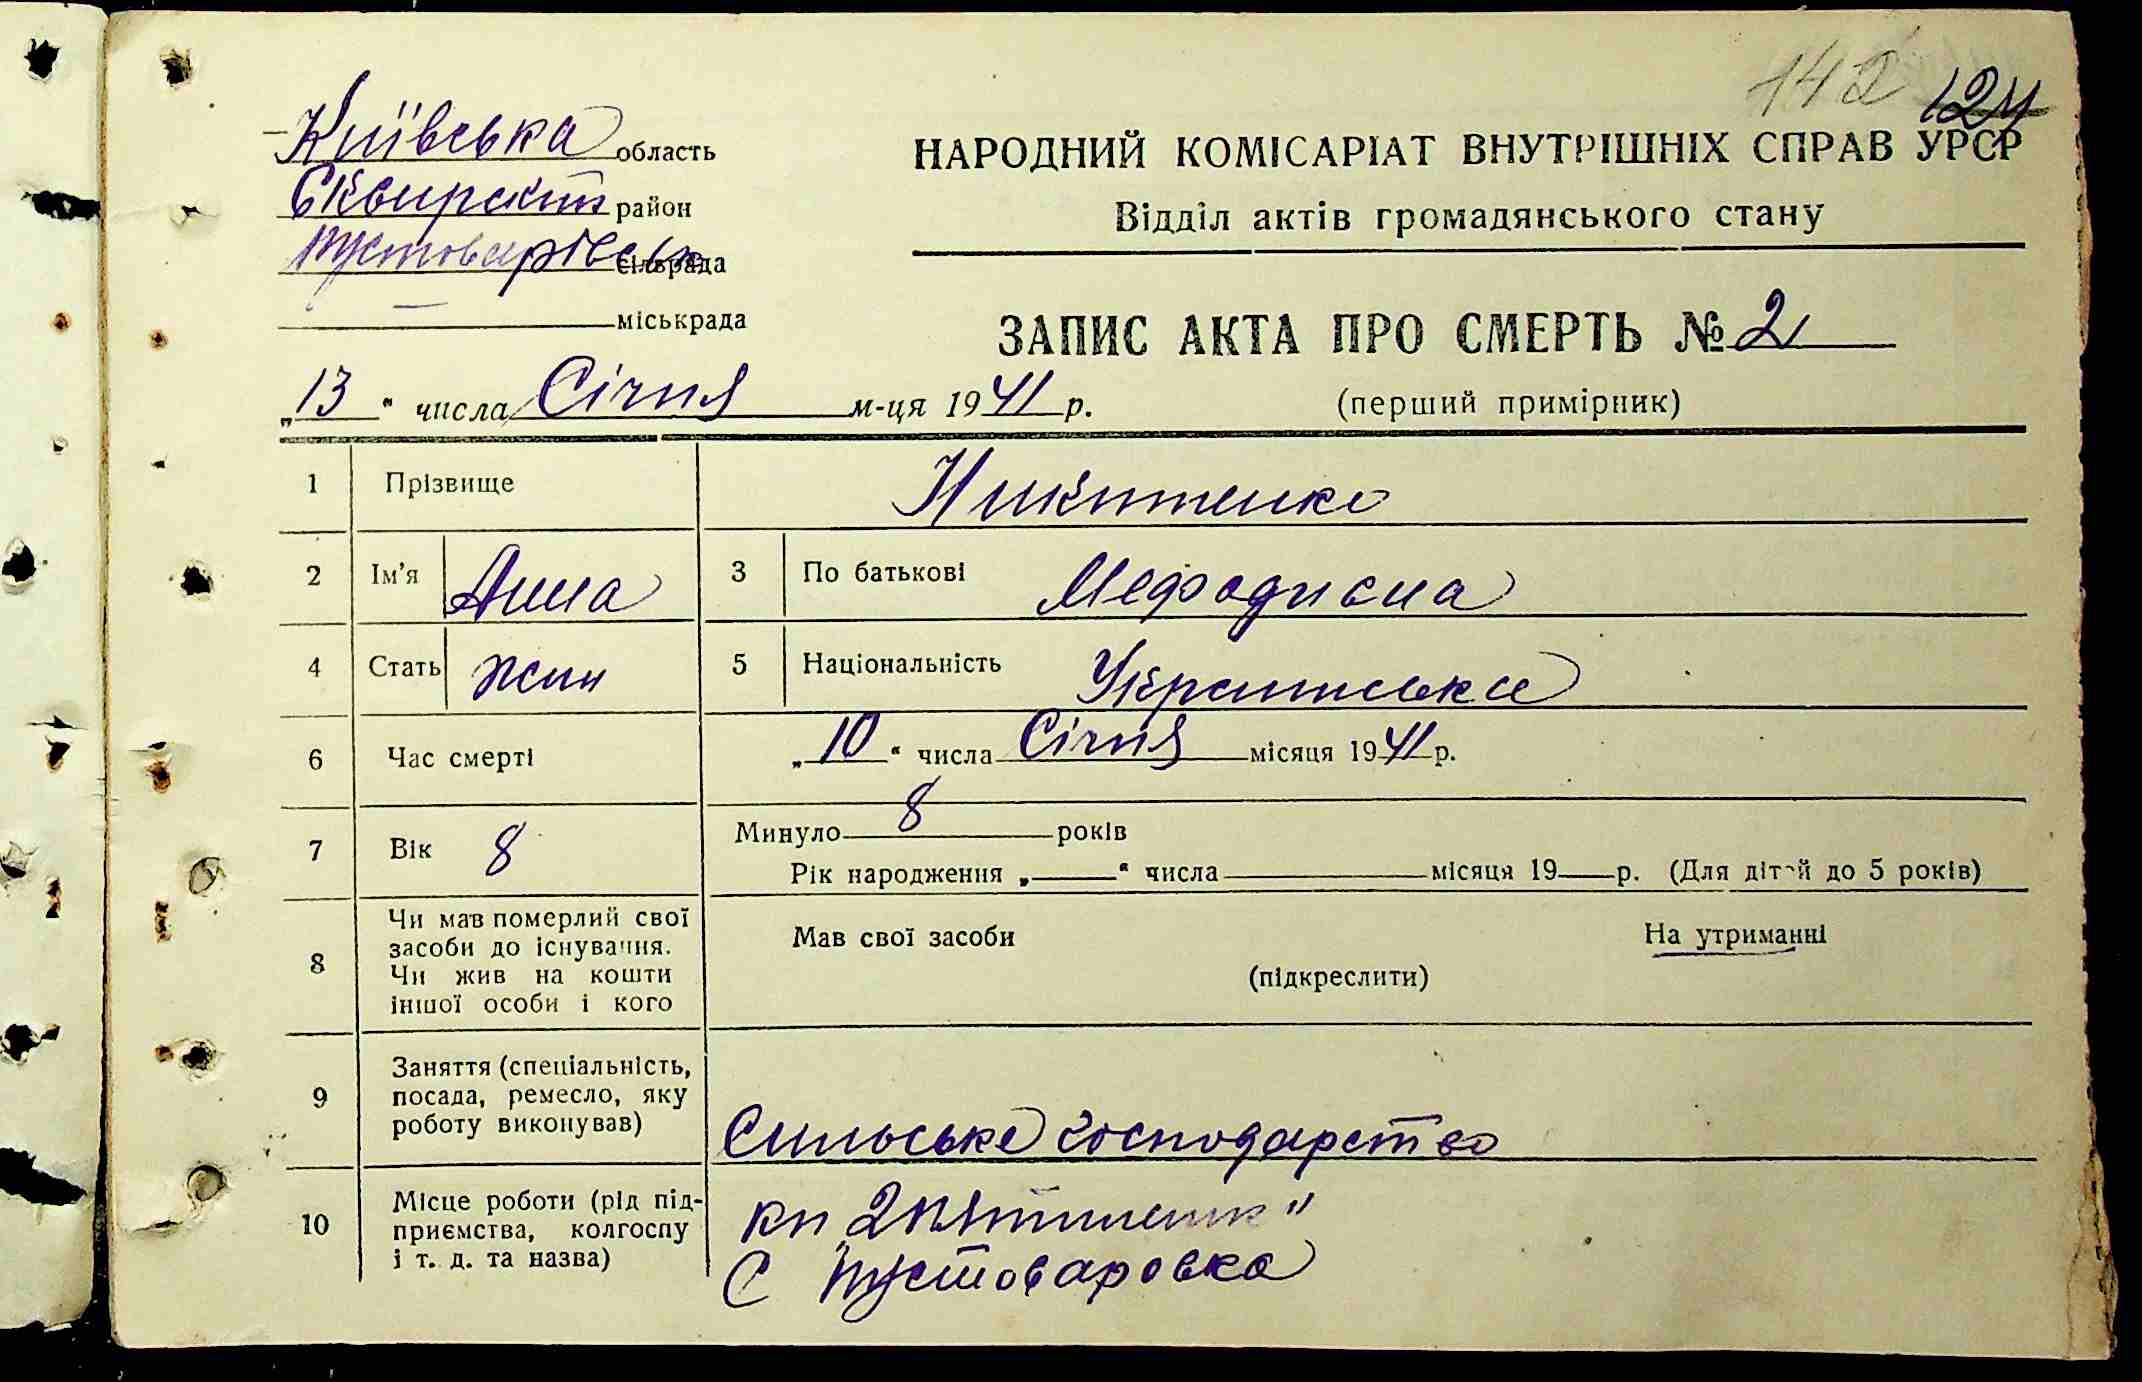 142 124
Київська область
Сквирский район
Пустоварівська сільрада
— міськрада
НАРОДНИЙ КОМІСАРІАТ ВНУТРІШНІХ СПРАВ УРСР
Відділ актів громадянського стану
ЗАПИС АКТА ПРО СМЕРТЬ № 2
(перший примірник)
„13“ числа Січня м-ця 1941 р.
1 Прізвище Никитенко
2 Ім’я Анна 3 По батькові Мефодиевна
4 Стать жин 5 Національність Українська
6 Час смерті „10“ числа Січня місяця 1941 р.
7 Вік 8 Минуло 8 років
Рік народження „ “ числа місяця 19 р. (Для дітей до 5 років)
8 Чи мав померлий свої
засоби до існування.
Чи жив на кошти
іншої особи і кого
Мав свої засоби На утриманні
(підкреслити)
9 Заняття (спеціальність,
посада, ремесло, яку
роботу виконував)
Сильське господарство
10 Місце роботи (рід під-
приємства, колгоспу
і т. д. та назва)
кп „2 пятилетк"
С Пустоваровка